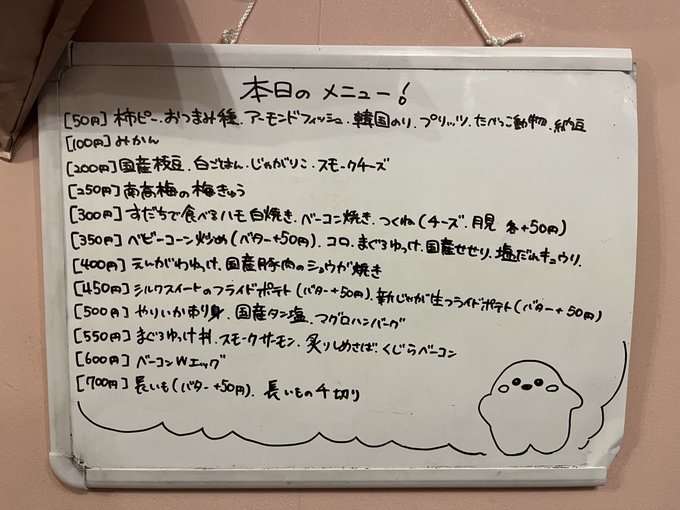 本日のメニュー!
[50円] 柿ピー.おつまみ種.アーモンドフィッシュ.韓国のり.プリッツ.たべっこ動物.納豆
[100円] みかん
[200円] 国産枝豆.白ごはん.じゃがりこ.スモークチーズ
[250円] 南高梅の梅きゅう
[300円] すだちで食べるハモ白焼き.ベーコン焼き.つくね(チーズ.月見 各+50円)
[350円] ベビーコーン炒め(バター+50円).コロ.まぐろゆっけ.国産せせり.塩だれキュウリ.
[400円] えんがわゆっけ.国産豚肉のショウガ焼き
[450円] シルクスイートのフライドポテト(バター+50円).新じゃが生フライドポテト(バター+50円)
[500円] やりいか刺り身.国産タン塩.マグロハンバーグ
[550円] まぐろゆっけ丼.スモークサーモン.炙りしめさば.くじらベーコン
[600円] ベーコンWエッグ
[700円] 長いも(バター+50円).長いもの千切り